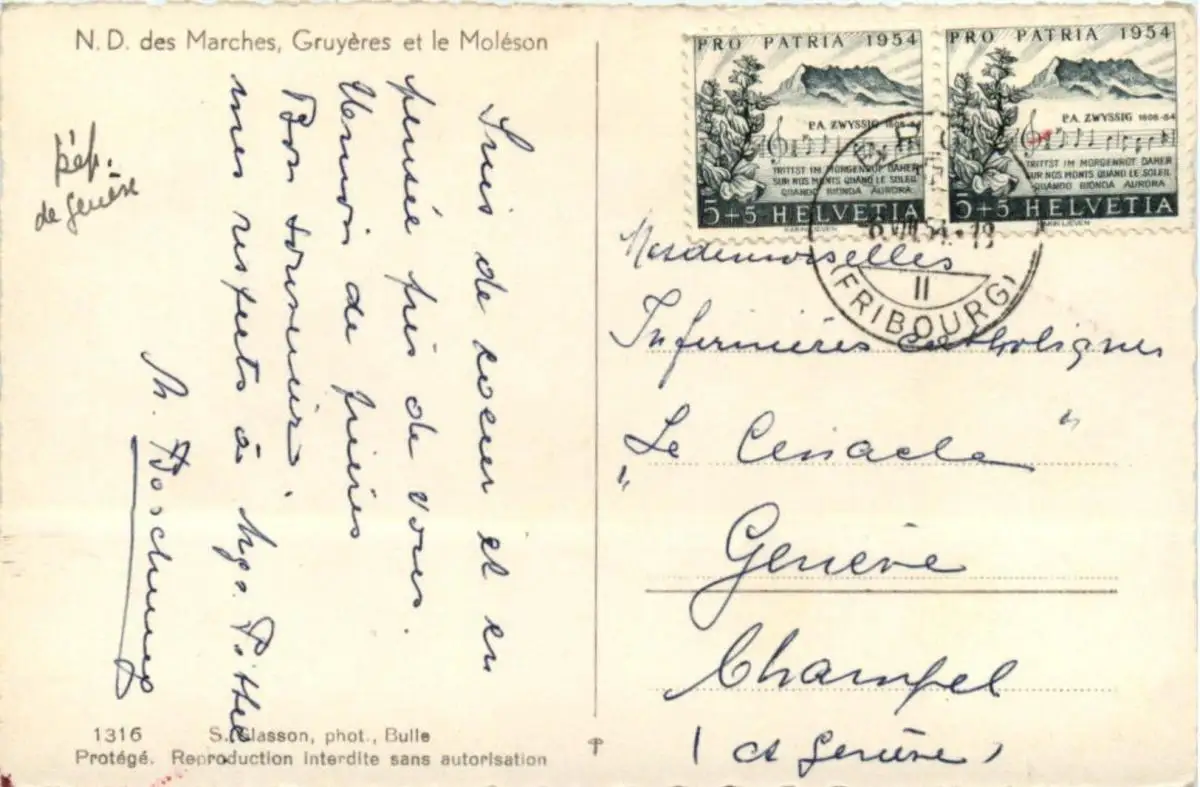 N. D. des Marches, Gruyères et le Moléson
pép.
de genèse
Suis de coeur et en
pensée près de vous.
Union de prières
Bon souvenir.
mes respects à Mgr. Pittet
M.
1316 S. Glasson, phot., Bulle
Protégé. Reproduction interdite sans autorisation
PRO PATRIA 1954
P.A. ZWYSSIG 1808-54
TRITTST IM MORGENROT DAHER
SUR NOS MONTS QUAND LE SOLEIL
QUANDO BIONDA AURORA
5+5 HELVETIA
KARIN LIEVEN
PRO PATRIA 1954
P.A. ZWYSSIG 1808-54
TRITTST IM MORGENROT DAHER
SUR NOS MONTS QUAND LE SOLEIL
QUANDO BIONDA AURORA
5+5 HELVETIA
KARIN LIEVEN
VIII 54.-19
II
(FRIBOURG)
Mesdemoiselles
Infirmières catholiques
"Le Cénacle"
Genève
Champel
(ct Genève)